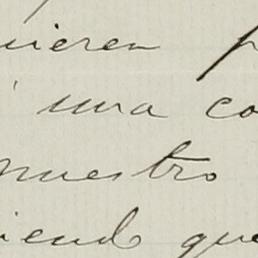 uieren p
una co
nuestro
iendo que